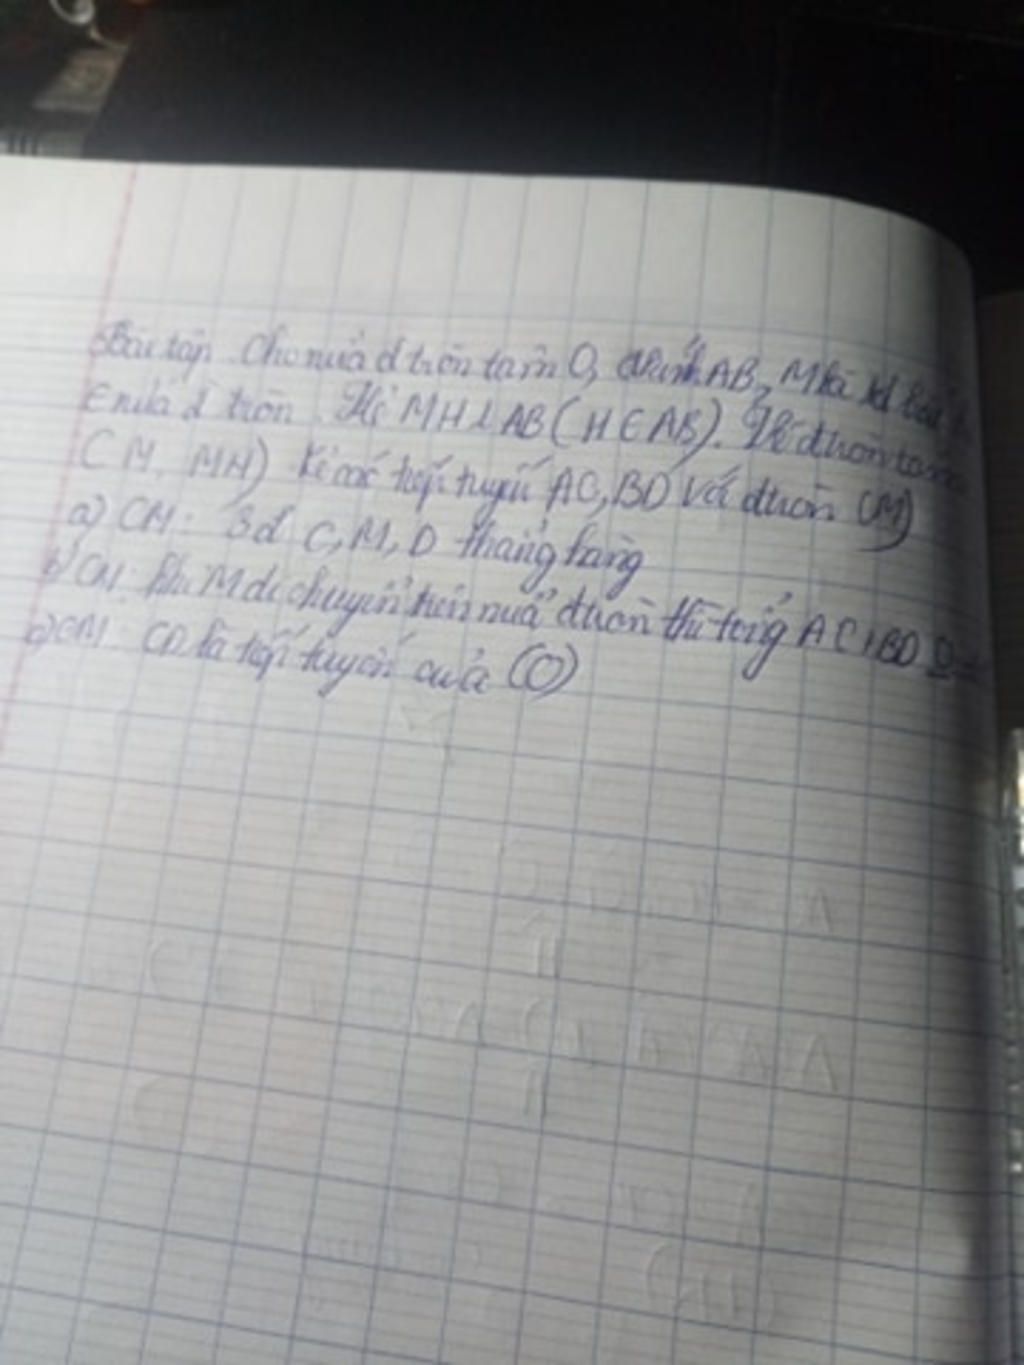 Bài tập. Cho nửa đ tròn tâm O, đkính AB, M là 1đ bất
E nửa đ tròn. Kẻ MH⊥AB (H∈AB). Vẽ đtròn tâm
(M, MH) kẻ các tiếp tuyến AC, BD với đtròn (M)
a) CM: 3đ C, M, D thẳng hàng
b) CM: khi M di chuyển trên nửa đtròn thì tổng AC+BD
c) CM: CD là tiếp tuyến của (O)